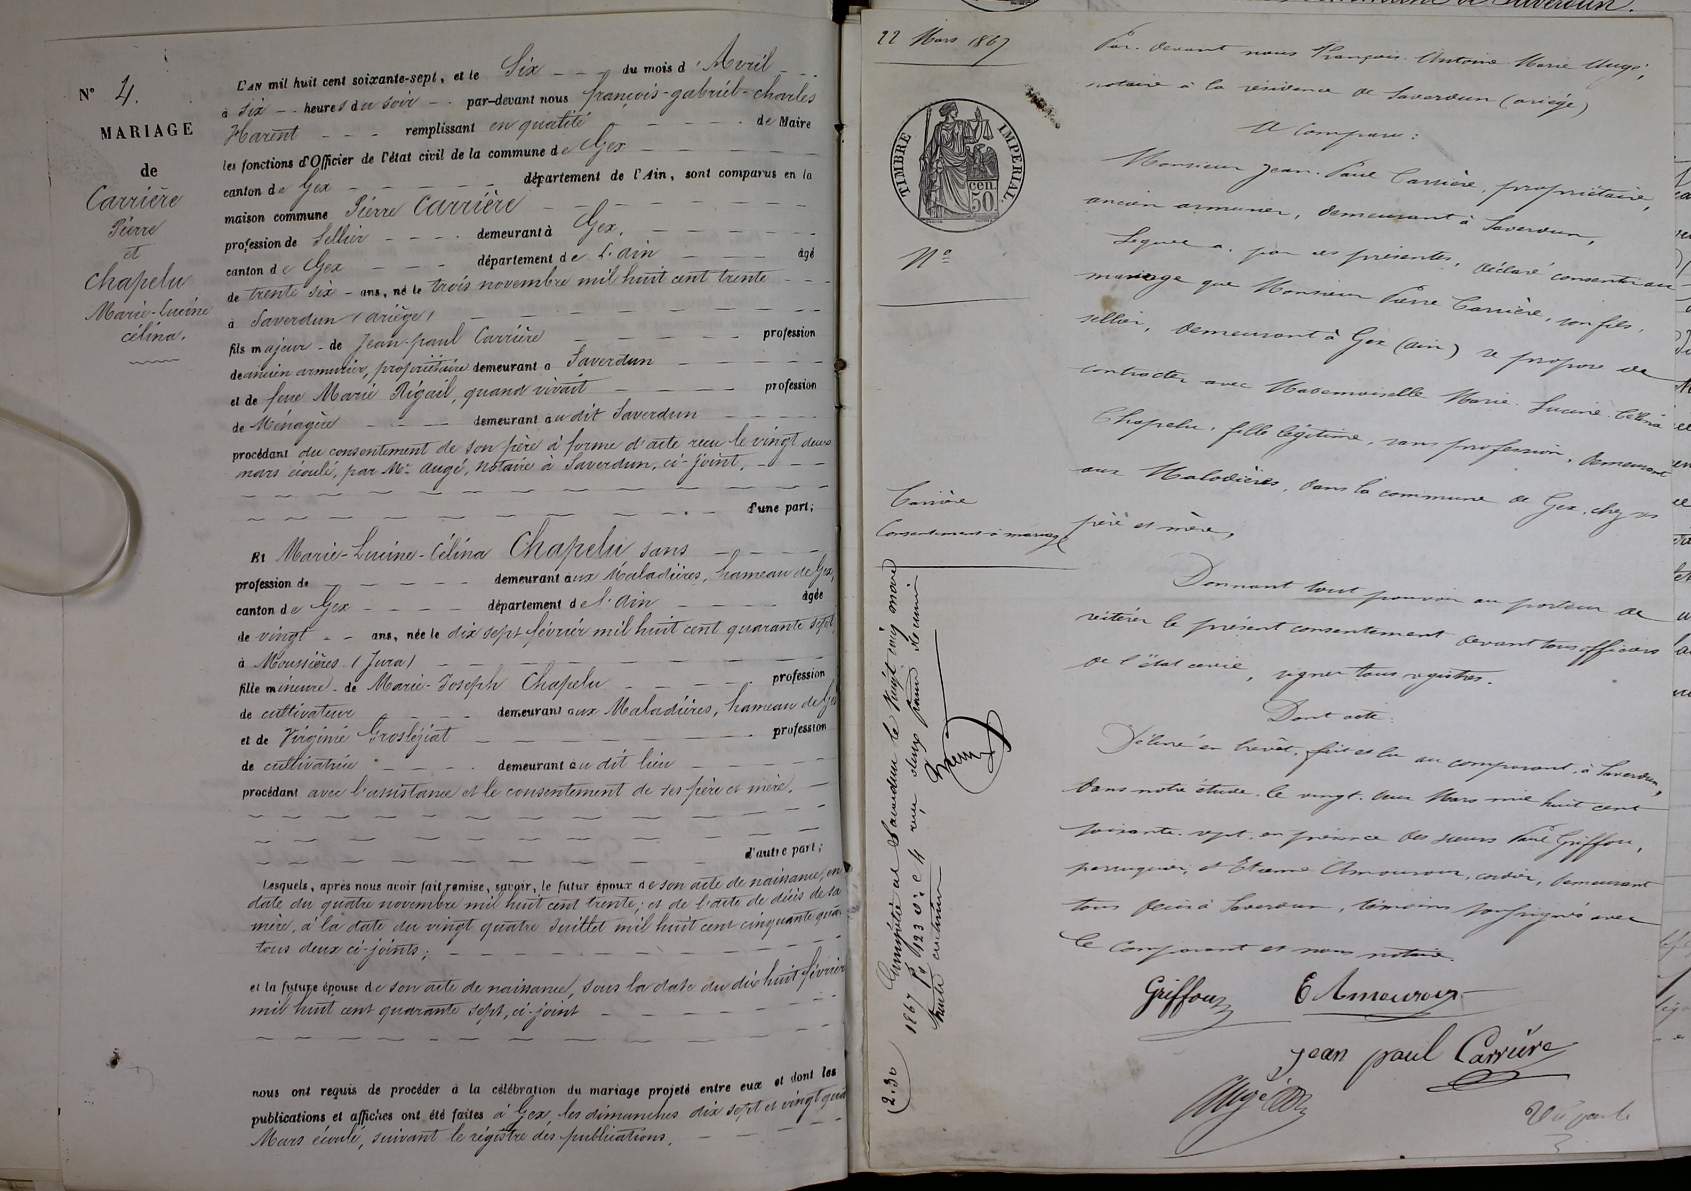 N° 4.
MARIAGE
de
Carrière
Pierre
et
Chapelu
Marie-Lucine
célina.
L'AN mil huit cent soixante-sept, et le Six du mois d'Avril
à Six heures du soir par-devant nous françois-gabriel-charles
Harent remplissant en qualité de Maire
les fonctions d'Officier de l'état civil de la commune de Gex
canton de Gex département de l'Ain, sont comparus en la
maison commune Pierre Carrière
profession de Sellier demeurant à Gex,
canton de Gex département de l'ain âgé
de trente six ans, né le trois novembre mil huit cent trente
à Saverdun (ariège)
fils majeur de Jean-paul Carrière profession
de ancien armurier, propriétaire demeurant à Saverdun
et de feue Marie Rigail, quand vivait profession
de Ménagère demeurant au dit Saverdun
procédant du consentement de son père à forme d'acte reçu le vingt deux
mars écoulé, par Me Augé, notaire à Saverdun, ci-joint,
d'une part;
Et Marie-Lucine-Célina Chapelu sans
profession de demeurant aux Maladières, hameau de Gex,
canton de Gex département de l'ain âgée
de vingt ans, née le dix sept février mil huit cent quarante sept
à Moussières (Jura)
fille mineure de Marie-Joseph Chapelu profession
de cultivateur demeurant aux Maladières, hameau de Gex
et de Virginie Grosléziat profession
de cultivatrice demeurant au dit lieu
procédant avec l'assistance et le consentement de ses père et mère.
d'autre part;
Lesquels, après nous avoir fait remise, savoir, le futur époux de son acte de naissance, en
date du quatre novembre mil huit cent trente; et de l'acte de décès de sa
mère, à la date du vingt quatre Juillet mil huit cent cinquante
tous deux ci-joints;
et la future épouse de son acte de naissance, sous la date du dix huit février
mil huit cent quarante sept, ci-joint
nous ont requis de procéder à la célébration du mariage projeté entre eux et dont les
publications et affiches ont été faites à Gex les dimanches dix sept et vingt
Mars écoulé, suivant le régistre des publications.
22 Mars 1867
TIMBRE IMPERIAL
50 cen
N°
Carrière
Consentement à mariage
Par devant nous François Antoine Marie Augé,
notaire à la résidence de Saverdun (ariège)
A comparu:
Monsieur Jean-Paul Carrière, propriétaire,
ancien armurier, demeurant à Saverdun,
Lequel a, par ces présentes, déclaré consentir au
mariage que Monsieur Pierre Carrière, son fils,
sellier, demeurant à Gex (ain) se propose de
contracter avec Mademoiselle Marie Lucine Célina
Chapelu, fille légitime, sans profession, demeurant
aux Maladières, dans la commune de Gex, chez ses
père et mère,
Donnant tout pouvoir au porteur de
réitérer le présent consentement devant tous officiers
de l'état civil, signer tous registres.
Dont acte.
Délivré en brevet, fait et lu au comparant, à Saverdun,
dans notre étude. le vingt deux Mars mil huit cent
soixante sept, en présence des sieurs Paul Griffou,
perruquier, et Etienne Amouroux, cordier, demeurant
tous deux à Saverdun, témoins soussignés avec
le comparant et nous notaire.
Griffou E Amouroux
Jean paul Carrière
Augé
Enregistré à Saverdun le vingt cinq mars
1867 f° 123 v° c 4 reçu deux francs décime
trente centimes
2.30